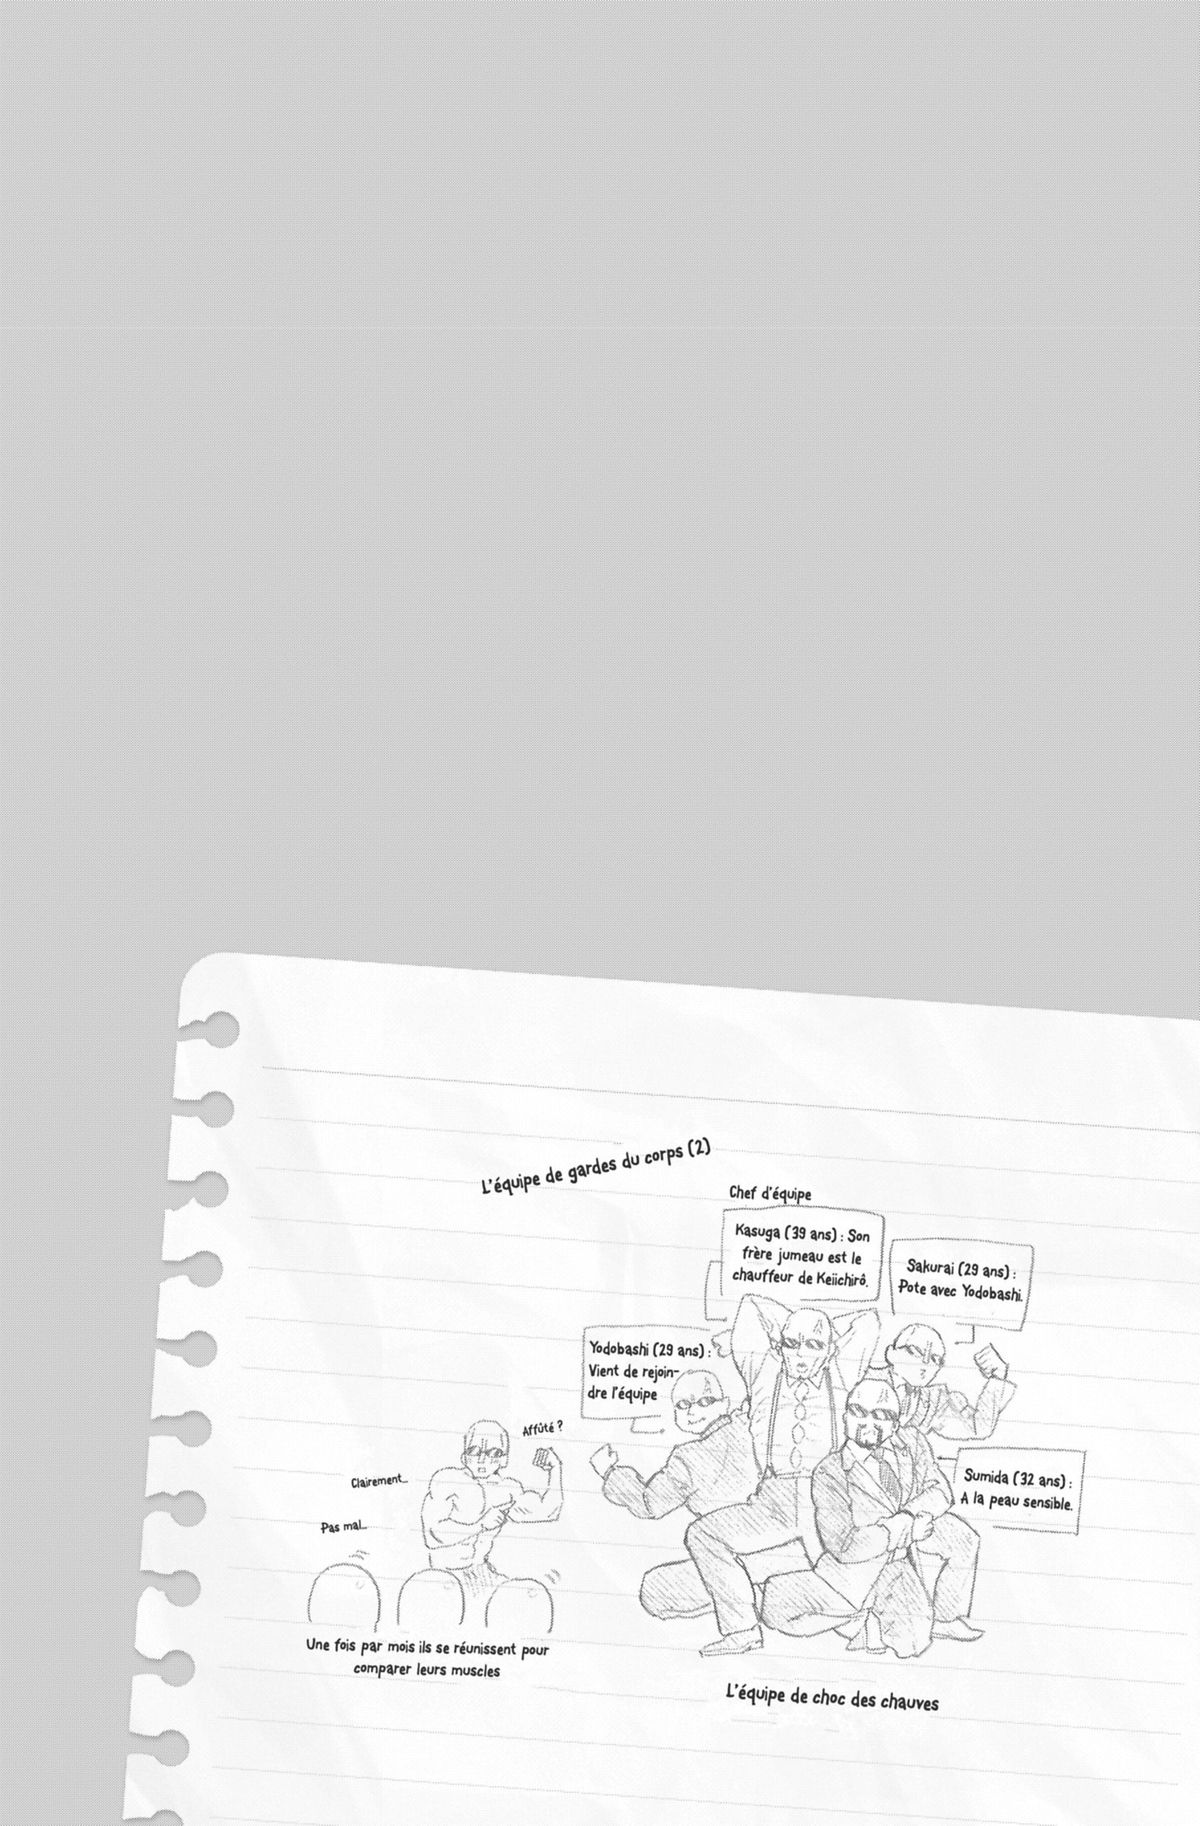 L'équipe de gardes du corps (2)
Chef d'équipe
Kasuga (39 ans) : Son
frère jumeau est le
chauffeur de Keiichirô.
Sakurai (29 ans) :
Pote avec Yodobashi.
Yodobashi (29 ans) :
Vient de rejoin-
dre l'équipe
Sumida (32 ans) :
A la peau sensible.
Affûté ?
Clairement...
Pas mal...
Une fois par mois ils se réunissent pour
comparer leurs muscles
L'équipe de choc des chauves